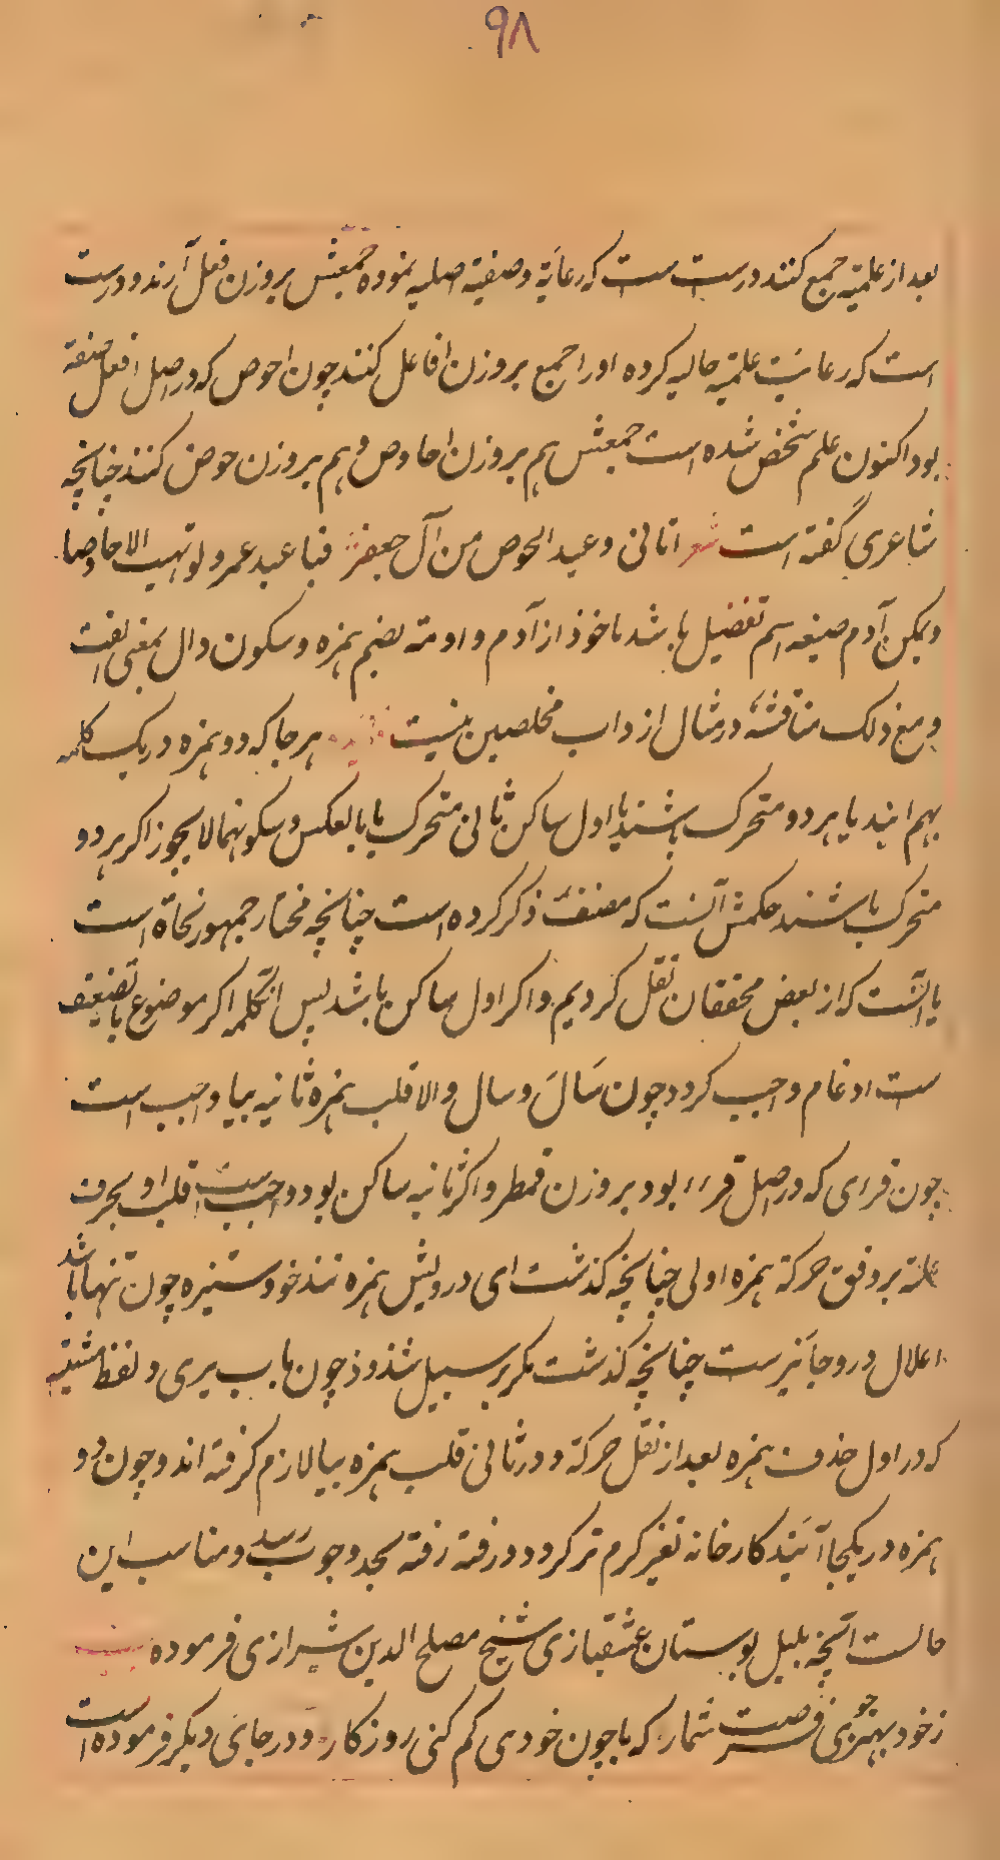 ۹۸
بعد از علمیته جمع کنند درست ست که رعایة وصفیته اصلیه نموده جمعش بروزن فعل آرند و درست
است که رعایت علمیته حالیه کرده او را جمع بروزن افاعل کنند چون احوص که در اصل افعل صفته
بود اکنون علم شخص شده است جمعش هم بروزن احاوص و هم بروزن حوص کنند چنانچه
شاعری گفته است شعر اتانی وعید الحوص من آل جعفر فیا عبد عمرو لو نهیت الاحاوصا
و یمکن آدم صیغه اسم تفضیل باشد ماخوذ از آدم و اومته بضم همزه و سکون دال بمعنی الفت
و مع ذلک مناقشه در مثال از داب مخلصین نیست هر جا که دو همزه در یک کلمه
بهم ایند یا هر دو متحرک باشند یا اول ساکن ثانی متحرک یا بالعکس و سکونهما لا یجوز اگر هر دو
متحرک باشند حکمش آنست که مصنف ذکر کرده است چنانچه مختار جمهور نحاة است
یا انست که از بعض محققان نقل کردیم و اگر اول ساکن باشد پس انکلمه اگر موضوع با تضعیف
ست ادغام واجب گردد چون سَالَ و سال و الا قلب همزه ثانیه بیا واجب است
چون قرای که در اصل قرءء بود بروزن قمطر و اگر ثانیه ساکن بود واجب است قلب او بحرف
علته بر وفق حرکة همزه اولی چنانچه گذشت ای درویش همزه تندخو و ستیزه چون تنها باشد
اعلال درو جایز ست چنانچه گذشت مگر بر سبیل شذوذ چون باب یری و لفظ مشیته
که در اول حذف همزه بعد از نقل حرکة و در ثانی قلب همزه بیا لازم گرفته اند و چون دو
همزه در یکجا آیند کارخانه تغیر گرم تر گردد و رفته رفته بحد وجوب رسد و مناسب این
حالست انچه بلبل بوستان عشقبازی شیخ مصلح الدین شیرازی فرموده بیت
ز خود بهتری جوی فرصت شمار که با چون خودی گم کنی روزگار و در جای دیگر فرموده است